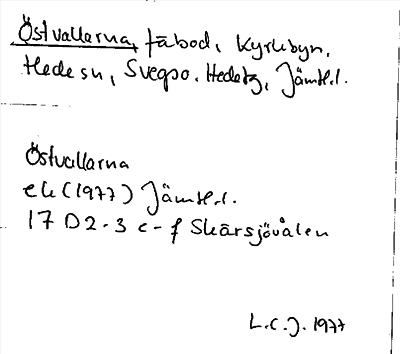 Östvallarna, fäbod, Kyrkbyn,
Hede sn, Svegso. Hedetg, Jämtl.l.
Östvallarna
ek (1977) Jämtl.l.
17 D 2-3 e-f Skärsjövålen
L.C.J. 1977